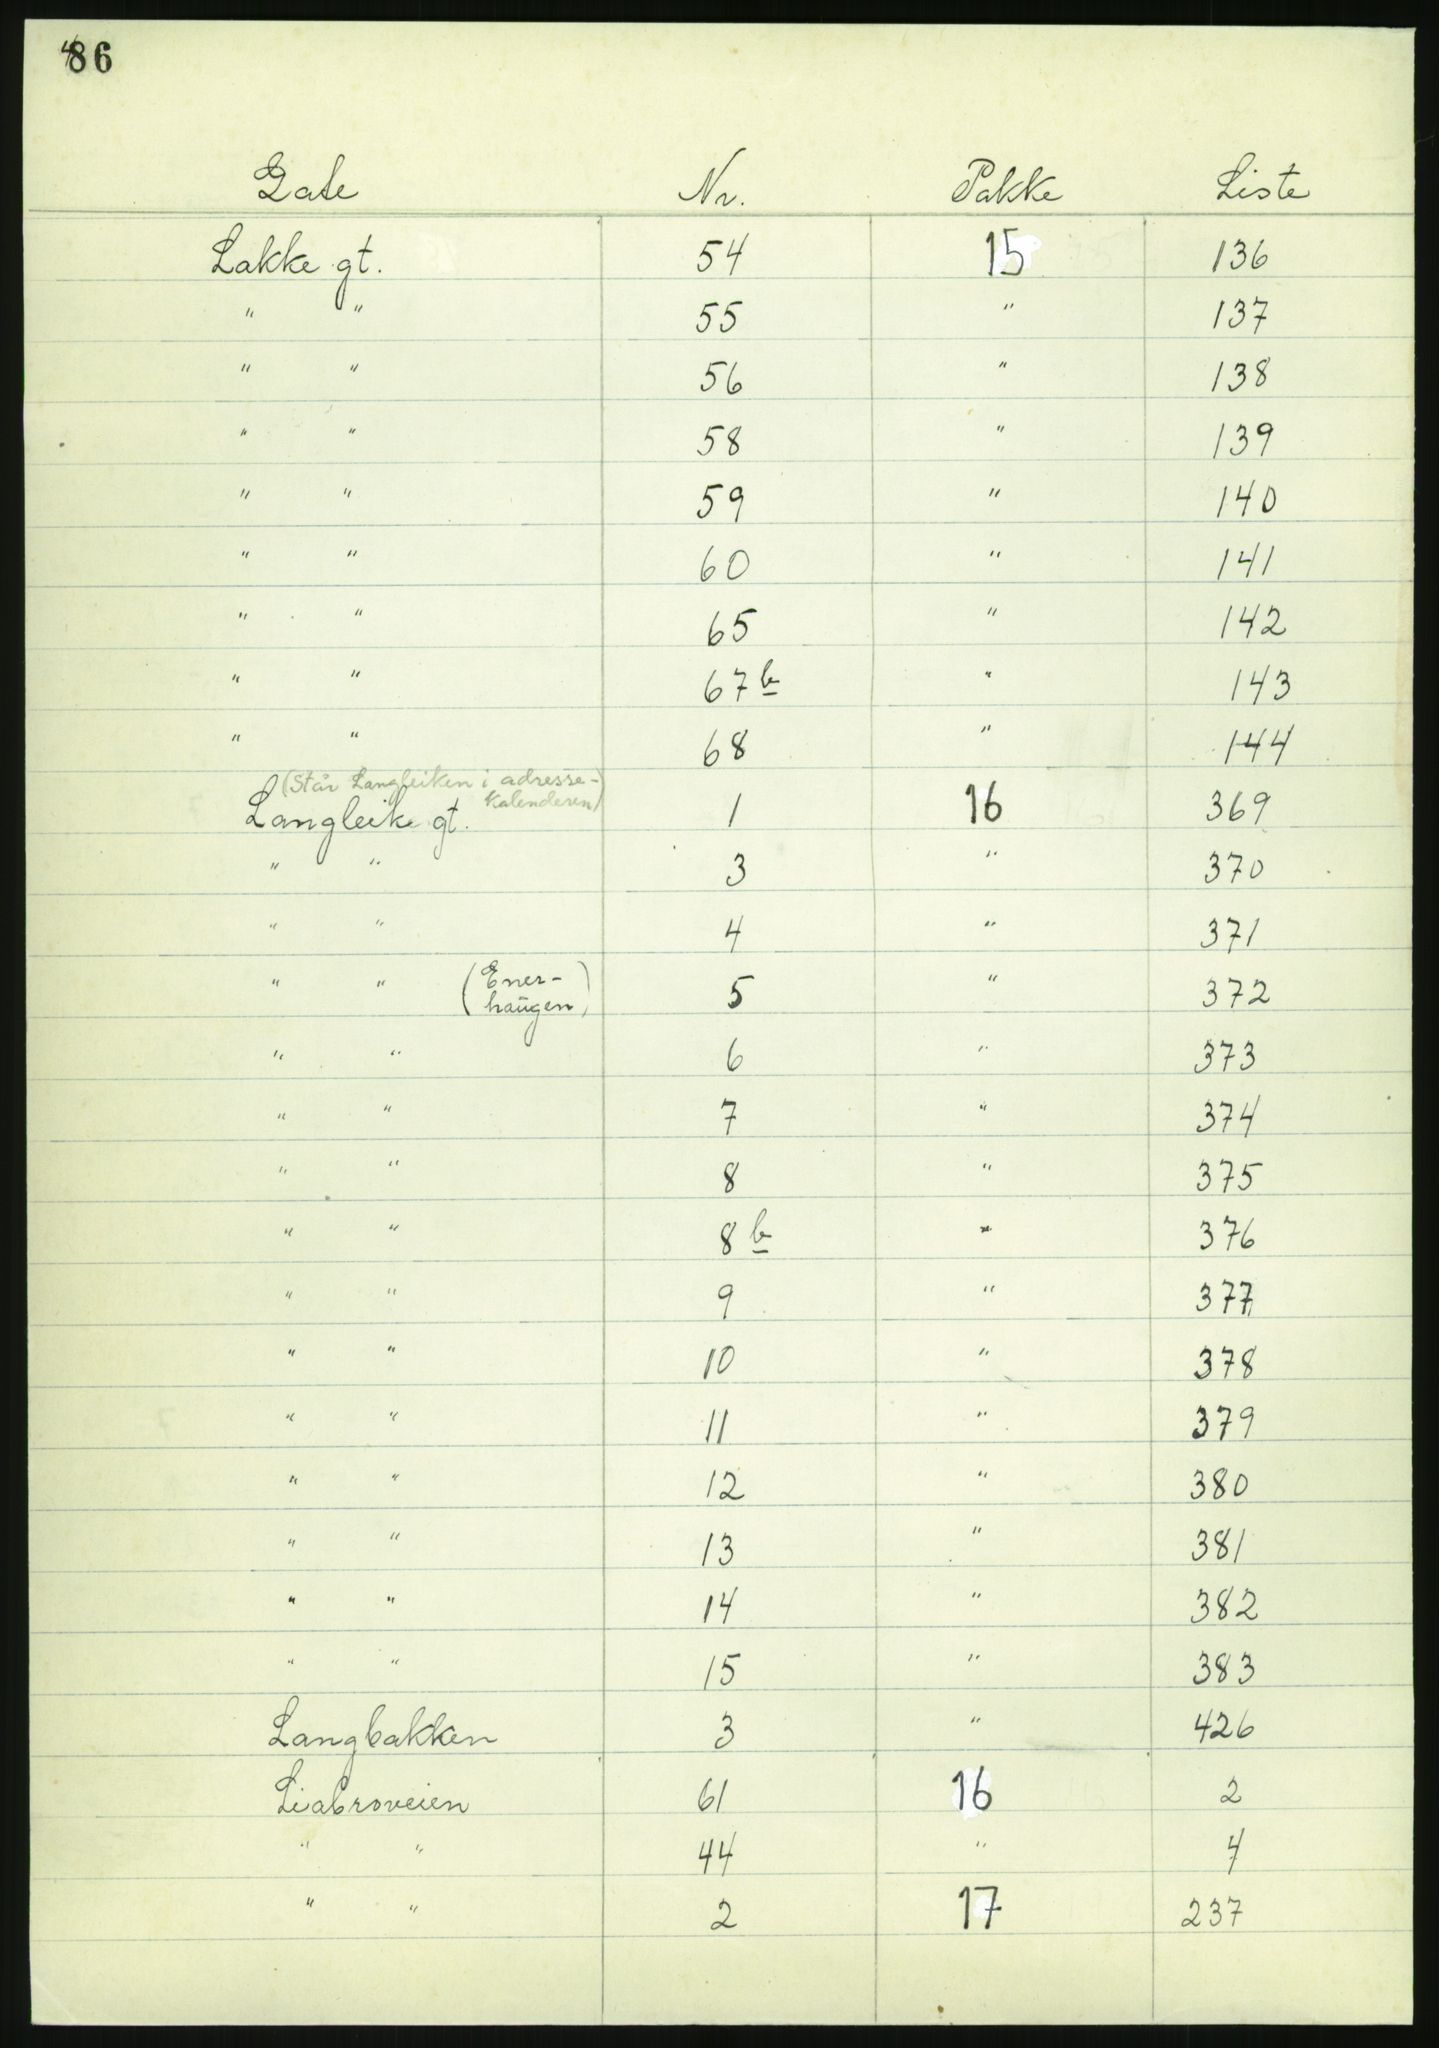 86
Gate Nr. Pakke Liste
Lakke gt. 54 15 136
" " 55 " 137
" " 56 " 138
" " 58 " 139
" " 59 " 140
" " 60 " 141
" " 65 " 142
" " 67 b " 143
" " 68 " 144
(Står Langleiken i adresse-
kalenderen)
Langleik gt. 1 16 369
" " 3 " 370
" " 4 " 371
" " (Ener-
haugen) 5 " 372
" " 6 " 373
" " 7 " 374
" " 8 " 375
" " 8 b " 376
" " 9 " 377
" " 10 " 378
" " 11 " 379
" " 12 " 380
" " 13 " 381
" " 14 " 382
" " 15 " 383
Langbakken 3 " 426
Liabroveien 61 16 2
" " 44 " 4
" " 2 17 237